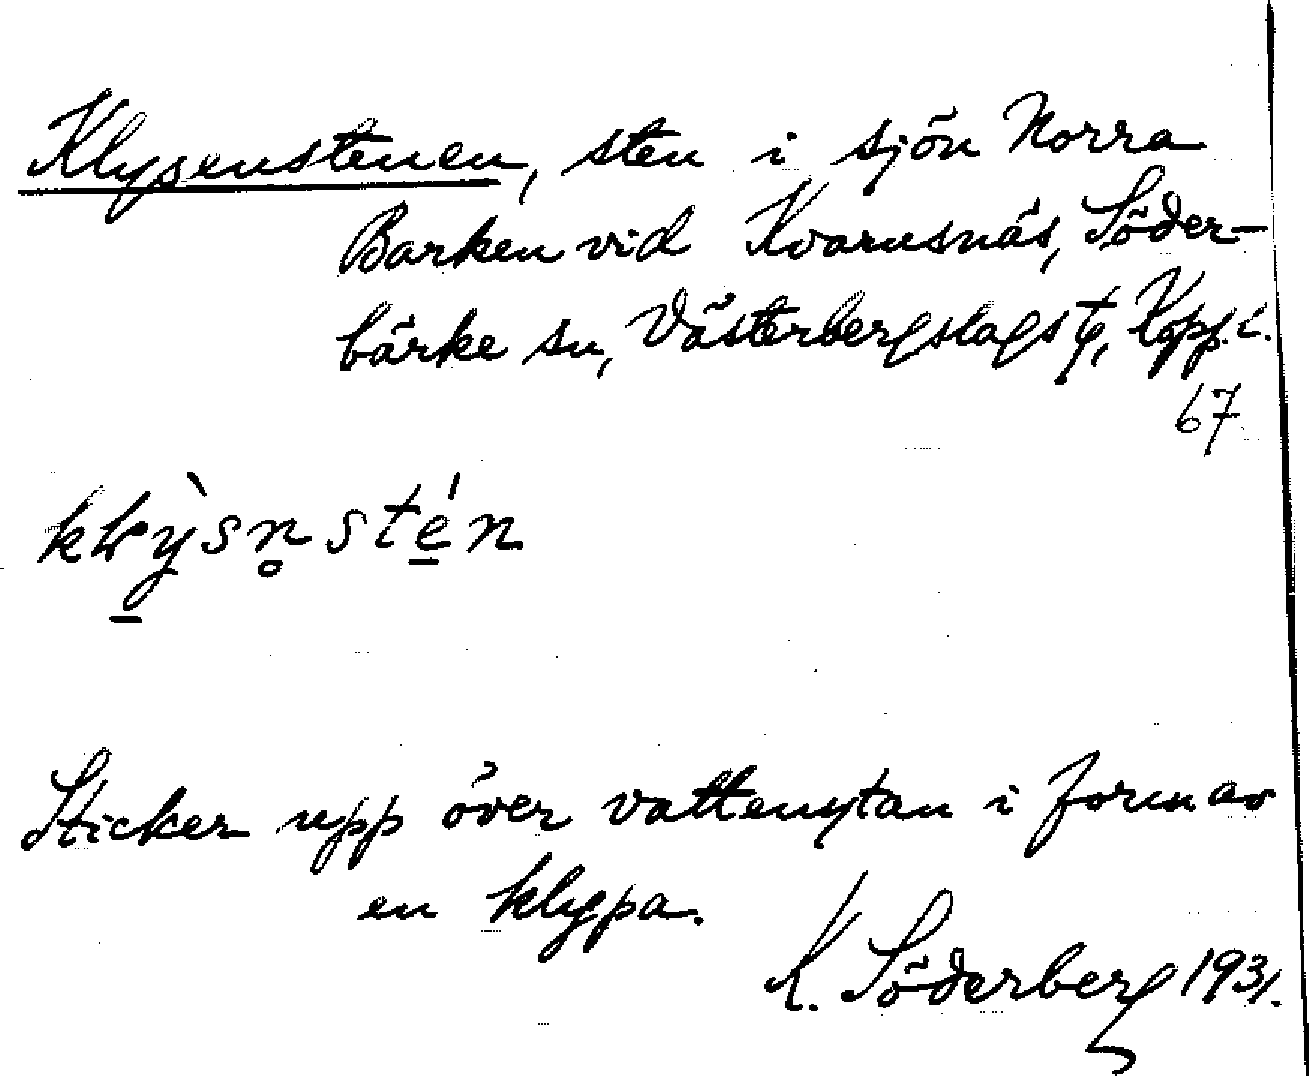 Klysenstenen, sten i sjön Norra
Barken vid Kvarnsnäs, Söder-
bärke sn, Västerbergslags tg, Kopp. l.
67
kḷỳsn̥sté̱n
Sticker upp över vattenytan i form av
en klypa.
K. Söderberg 1931.